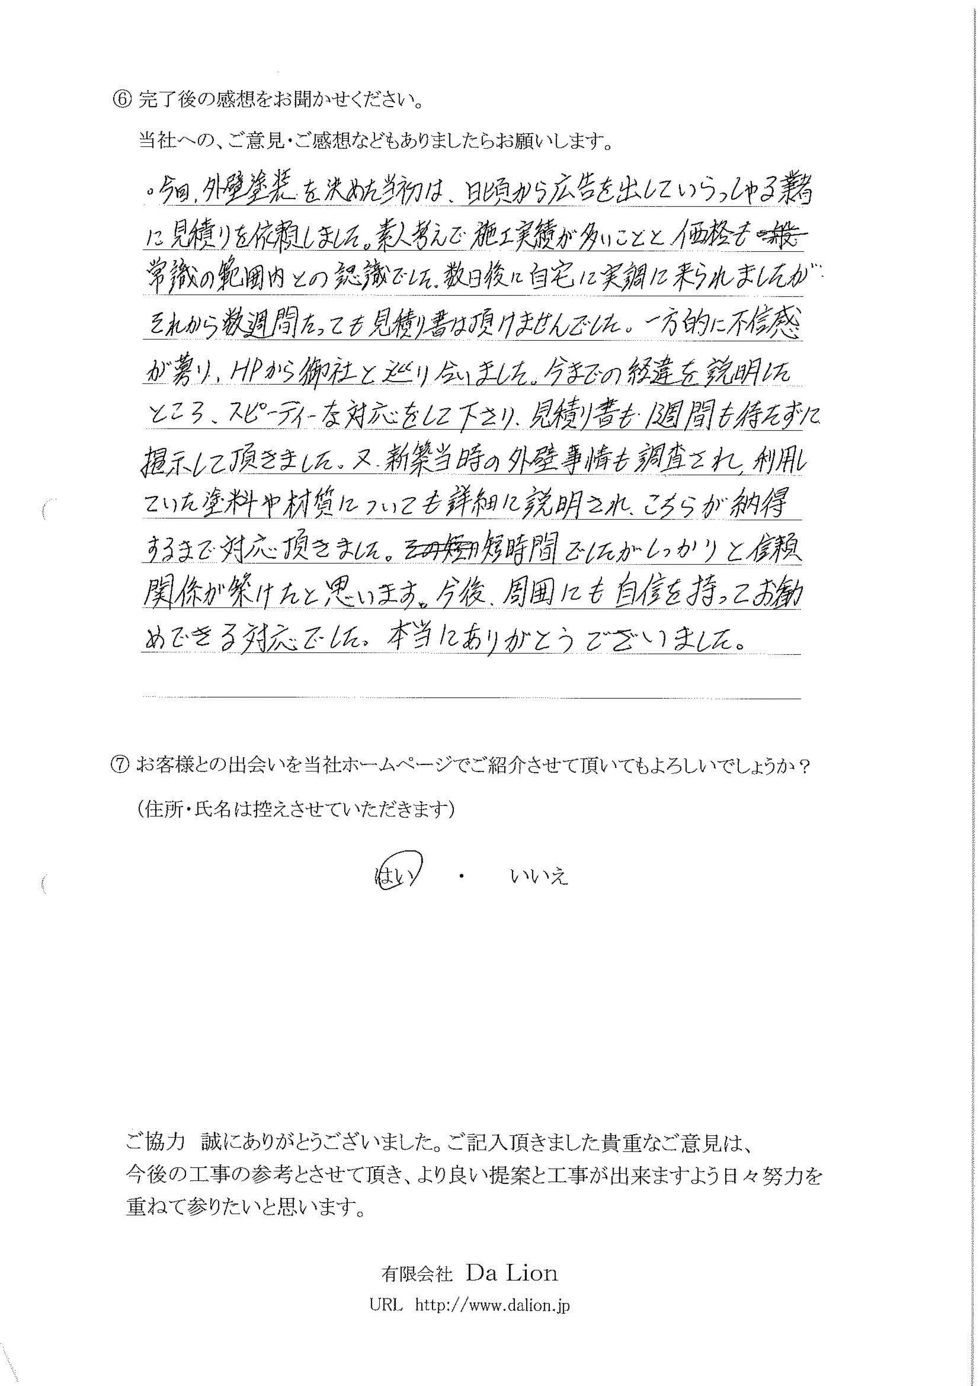 ⑥ 完了後の感想をお聞かせください。
当社への、ご意見・ご感想などもありましたらお願いします。
。今回、外壁塗装を決めた当初は、日頃から広告を出していらっしゃる業者
に見積りを依頼しました。素人考えで施工実績が多いことと価格も
常識の範囲内との認識でした。数日後に自宅に実調に来られましたが
それから数週間たっても見積り書は頂けませんでした。一方的に不信感
が募り、HPから御社と巡り合いました。今までの経違を説明した
ところ、スピーディーな対応をして下さり、見積り書も1週間も待たずに
提示して頂きました。又、新築当時の外壁事情も調査され、利用し
ていた塗料や材質についても詳細に説明され、こちらが納得
するまで対応頂きました。短時間でしたがしっかりと信頼
関係が築けたと思います。今後、周囲にも自信を持ってお勧
めできる対応でした。本当にありがとうございました。
⑦ お客様との出会いを当社ホームページでご紹介させて頂いてもよろしいでしょうか？
（住所・氏名は控えさせていただきます）
はい ・ いいえ
ご協力 誠にありがとうございました。ご記入頂きました貴重なご意見は、
今後の工事の参考とさせて頂き、より良い提案と工事が出来ますよう日々努力を
重ねて参りたいと思います。
有限会社 Da Lion
URL http://www.dalion.jp